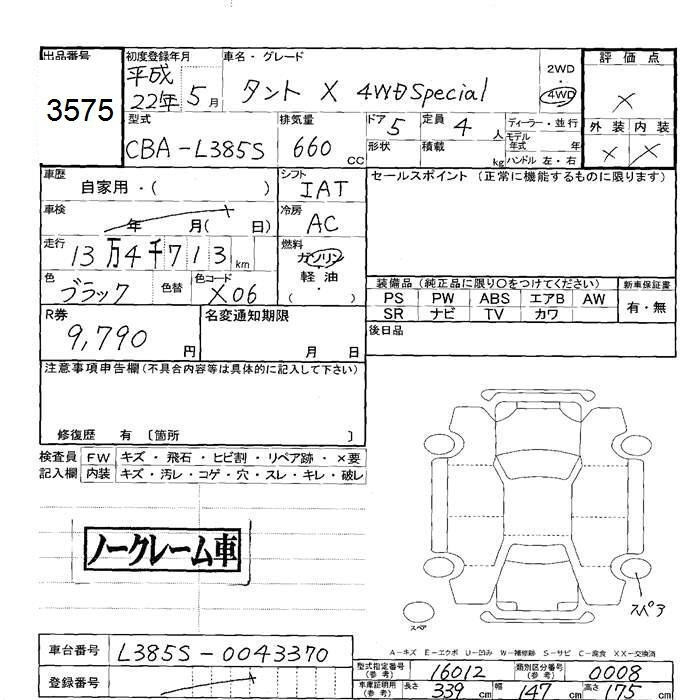 出品番号 初度登録年月 車名・グレード 評価点
3575 平成22年 5月 タント X 4WD Special 2WD 4WD ×
型式 排気量 ドア 定員 ディーラー・並行 外装 内装
CBA-L385S 660cc 5 4人 モデル年式 年 × ×
形状 積載 kg ハンドル 左・右
車歴 自家用・( ) シフト IAT セールスポイント (正常に機能するものに限ります)
車検 年 月( 日) 冷房 AC
走行 13万4千713km 燃料 ガソリン・軽油 ( )
色 ブラック 色替 色コード X06
装備品 (純正品に限り〇をつけてください) 新車保証書
PS PW ABS エアB AW 有・無
SR ナビ TV カワ
R券 9,790円 名変通知期限 月 日 後日品
注意事項申告欄(不具合内容等は具体的に記入して下さい)
修復歴 有 〔箇所 〕
検査員 FW キズ・飛石・ヒビ割・リペア跡・×要
記入欄 内装 キズ・汚レ・コゲ・穴・スレ・キレ・破レ
ノークレーム車
スペア
スペア
A-キズ E-エクボ U-凹み W-補修跡 S-サビ C-腐食 XX-交換済
車台番号 L385S-0043370
型式指定番号(参考) 16012 類別区分番号(参考) 0008
登録番号
車庫証明用(参考) 長さ 339cm 幅 147cm 高さ 175cm